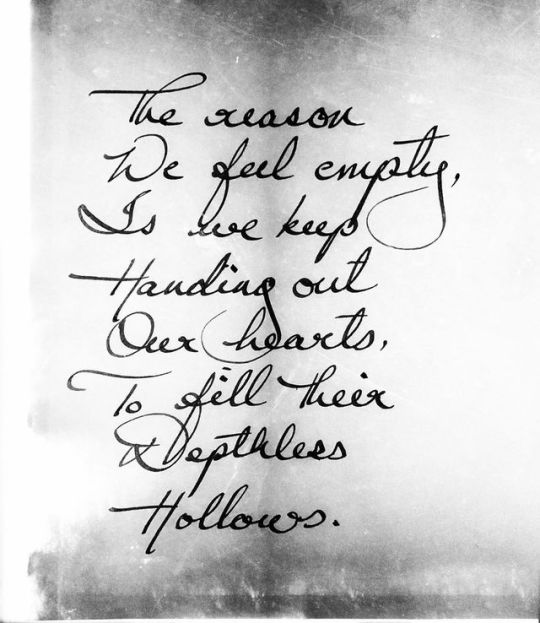 The reason
We feel empty,
Is we keep
Handing out
Our hearts,
To fill their
Depthless
Hollows.